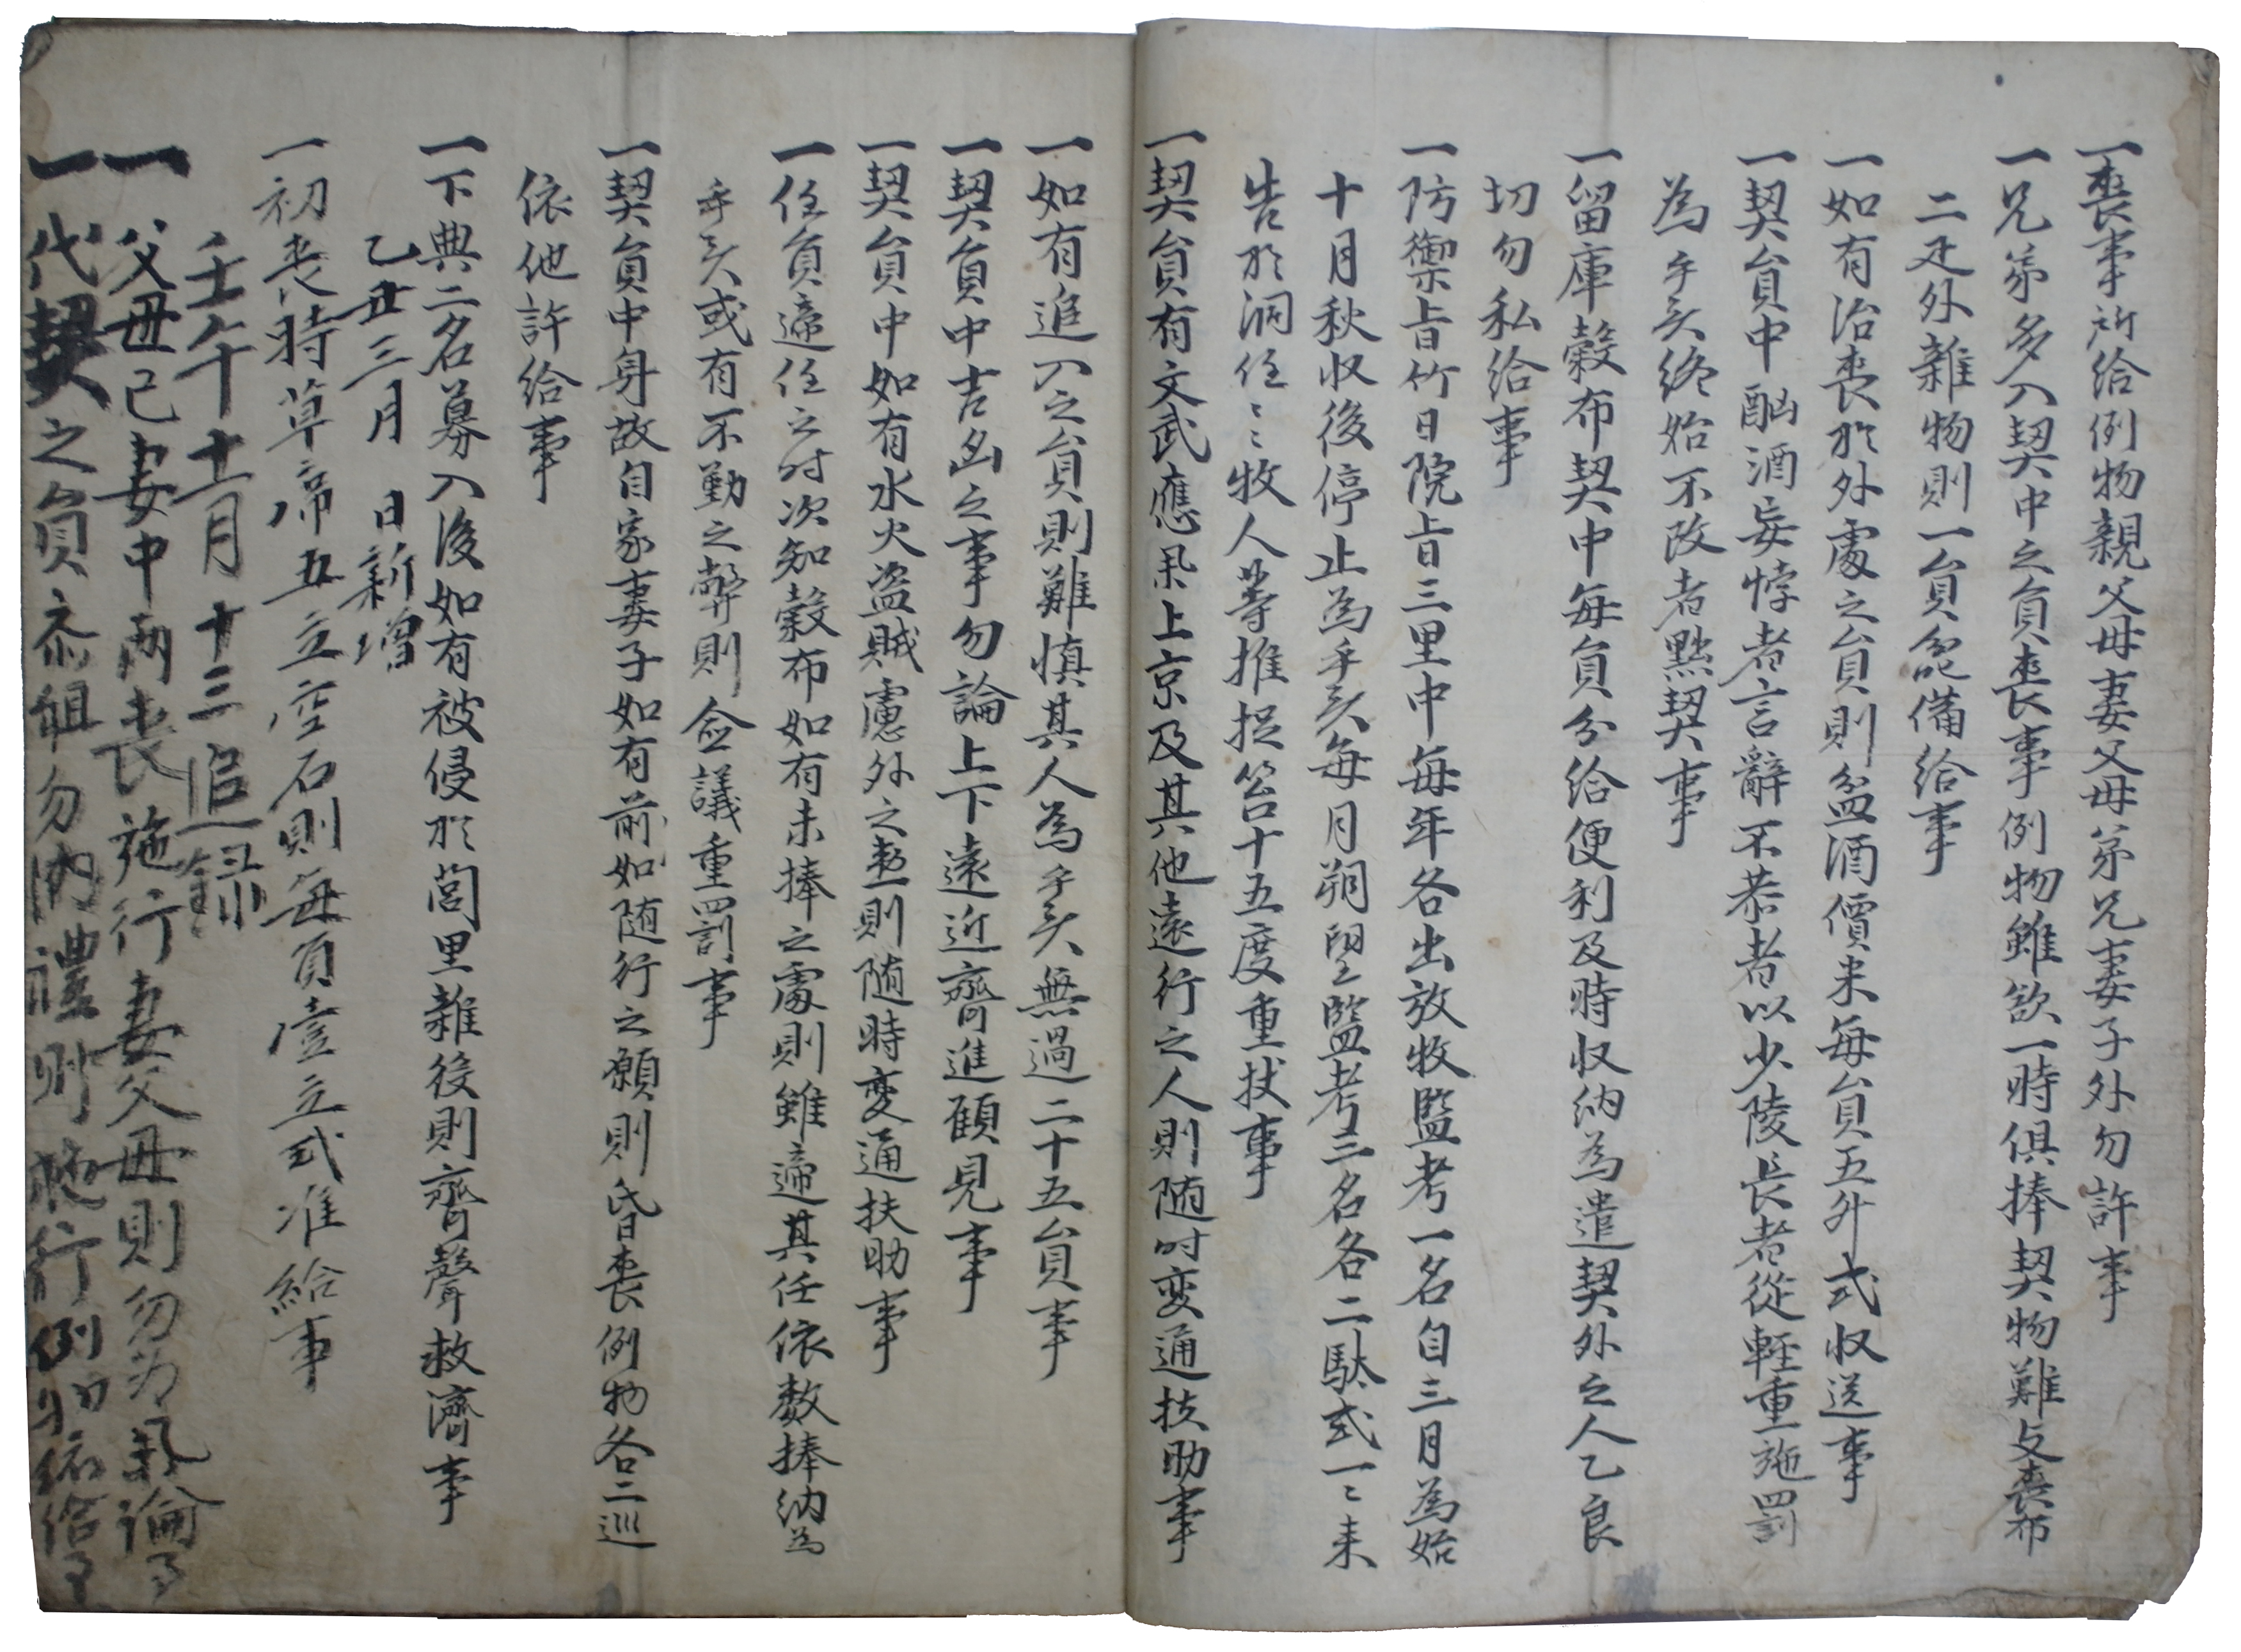 一喪事所給例物親父母妻父母弟兄妻子外勿許事
一兄弟多入契中之員喪事例物雖欲一時俱捧契物難支喪布
二疋外雜物則一員備給事
一如有治喪於外處之員則盆酒價米每員五升式收送事
一契員中酗酒妄悖者言辭不恭者以少陵長者從輕重施罰
為乎矣終始不改者黜契事
一留庫穀布契中每員分給便利及時收納為遣契外之人乙良
切勿私給事
一防禦旨竹日院旨三里中每年各出放牧監考一名自三月為始
十月秋收後停止為乎矣每月朔望監考三名各二駄式一〻来
告於洞任〻牧人等推捉笞十五度重扙事
一契員有文武應果上京及其他遠行之人則随时変通扶助事
一如有追入之員則難慎其人為乎矣無過二十五員事
一契員中吉凶之事勿論上下遠近齊進顧見事
一契員中如有水火盗賊慮外之患則随時変通扶助事
一任員遞任之时次知穀布如有未捧之處則雖遞其任依数捧納為
乎矣或有不勤之弊則僉議重罰事
一契員中身故自家妻子如有前如随行之願則昏喪例物各二巡
依他許給事
一下典二名募入後如有被侵於閭里雜役則齊聲救濟事
乙丑三月 日新增
一初喪時草席五立空石則每員壹立式准給事
壬午十一月十三追錄
一父母己妻中兩喪施行妻父母則勿為氣論事
一代契之員忝組勿納禮則施行例物依給事